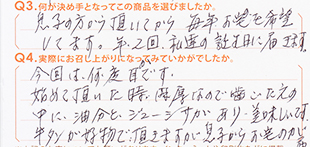 Q3.何が決め手となってこの商品を選びましたか。
息子の方から頂いてから 毎年お送を希望
してます。年2回、私達の 記念日に届きます
Q4.実際にお召し上がりになってみていかがでしたか。
今回は、何度目です。
始めて頂いた時、肉厚なので歯ごたえの
中に、油分と、ジューシすがあり、美味しいです
牛タンが好物で頂きますが 息子からお送のが